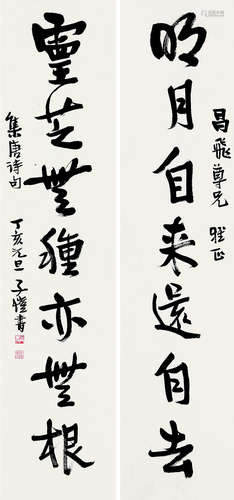 明月自来還自去
昌飛尊兄 雅正
靈芝無種亦無根
集唐诗句
丁亥元旦 子愷書